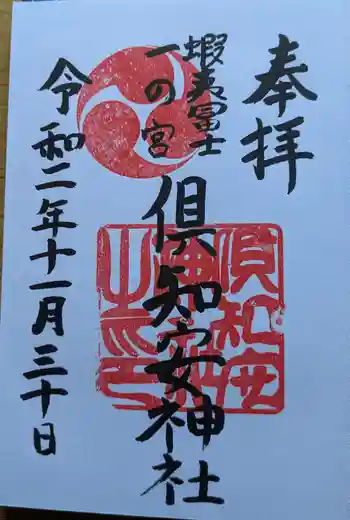 奉拝
蝦夷富士
一の宮
倶知安神社
令和二年十一月三十日